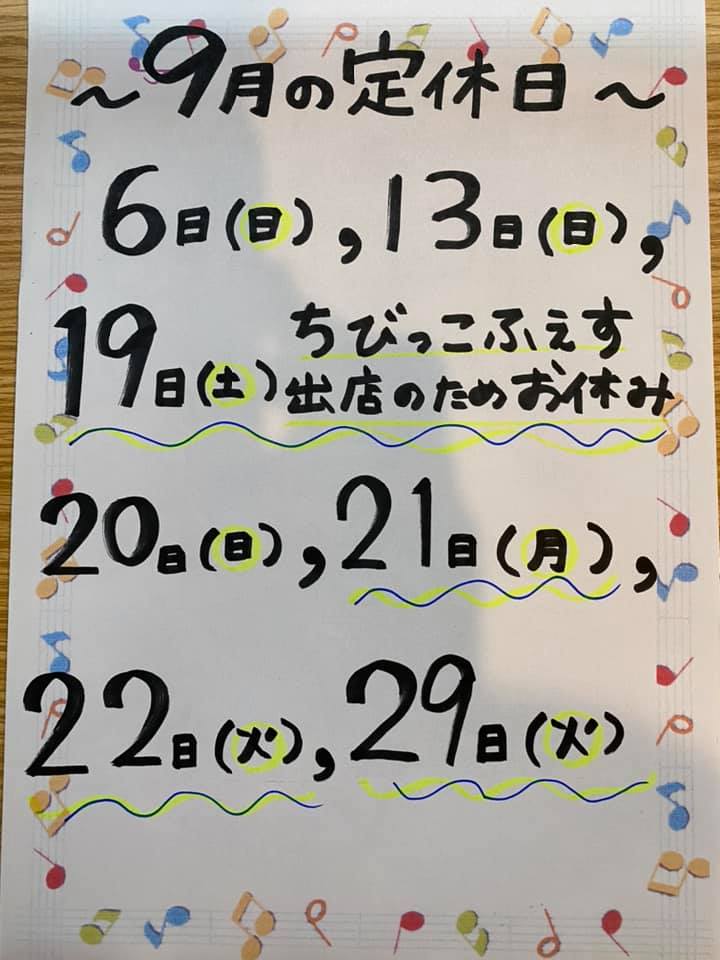 ~9月の定休日~
6日(日),13日(日),
19日(土)ちびっこふぇす
出店のためお休み
20日(日),21日(月),
22日(火),29日(火)